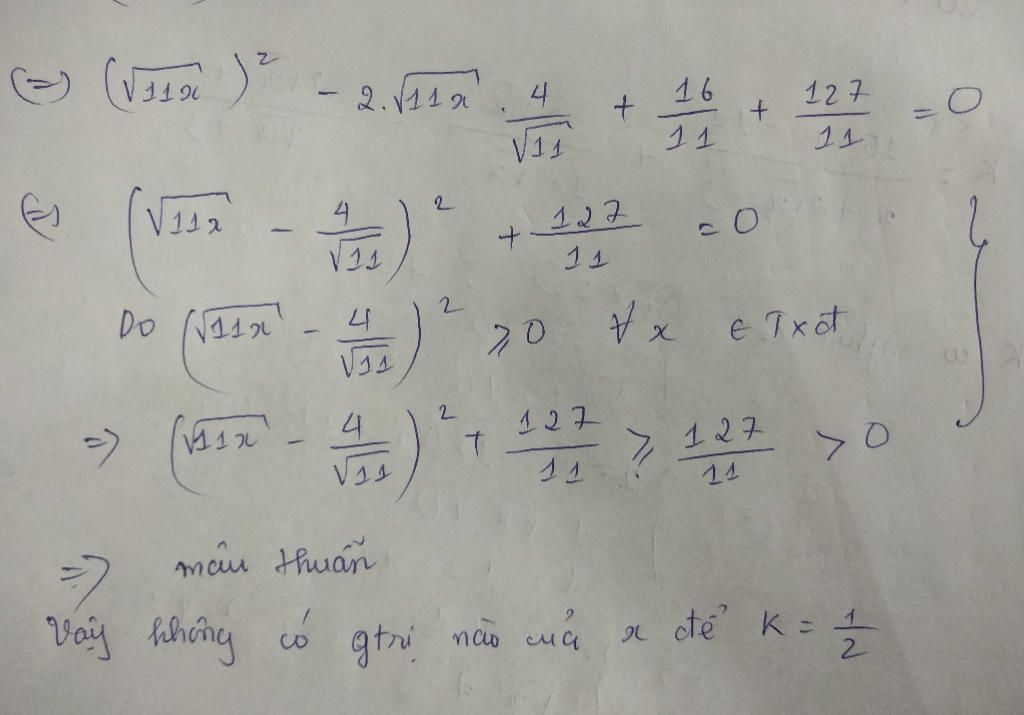 (=) (√11x)² - 2.√11x . 4/√11 + 16/11 + 127/11 = 0
(=) (√11x - 4/√11)² + 127/11 = 0
Do (√11x - 4/√11)² ⩾ 0 ∀x ∈ Txđ
=> (√11x - 4/√11)² + 127/11 ⩾ 127/11 > 0
=> mâu thuẫn
Vậy không có gtrị nào của x để K = 1/2